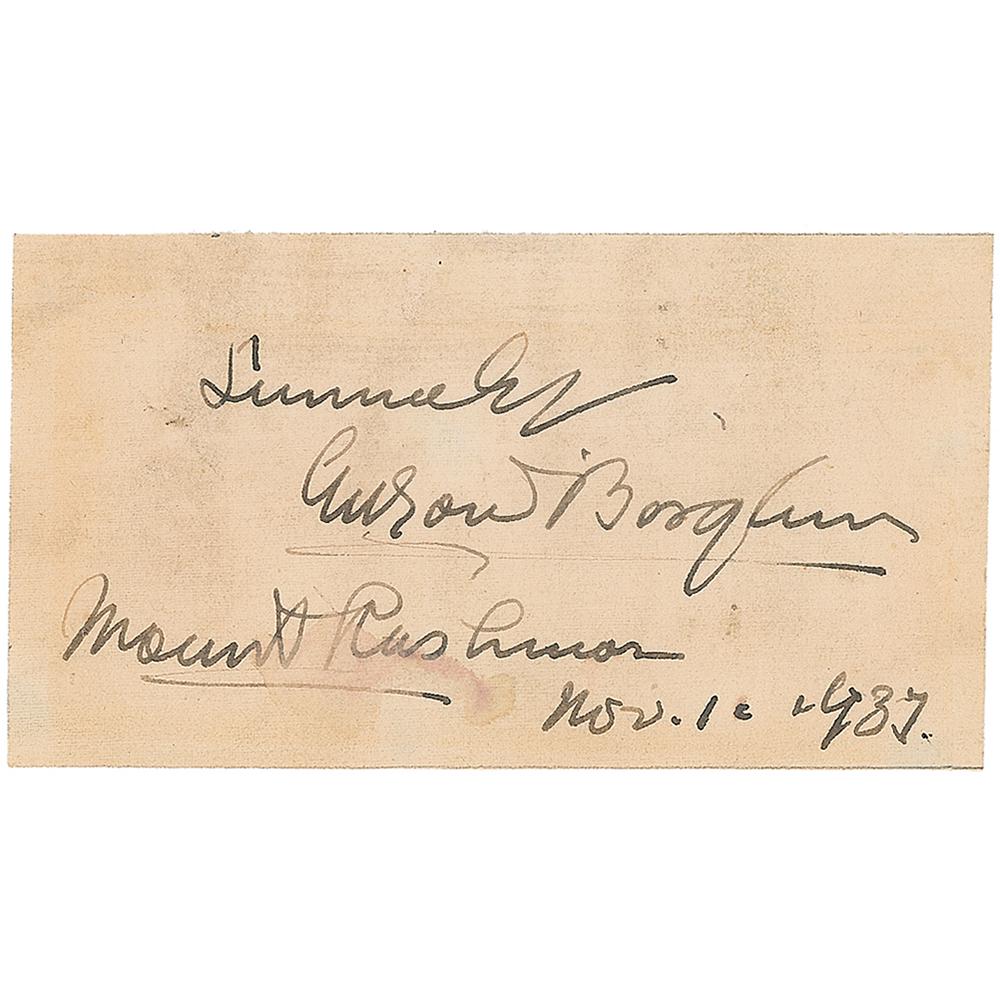 Sincerely
Gutzon Borglum
Mount Rushmore
Nov. 1 1937.